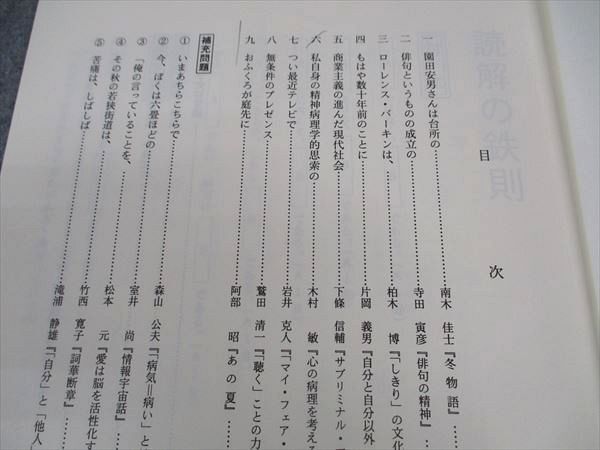 読解の鉄則
目次
一 園田安男さんは台所の……南木 佳士『冬物語』……
二 俳句というものの成立の……寺田 寅彦『俳句の精神』……
三 ローレンス・バーキンは、……柏木 博『「しきり」の文化
四 もはや数十年前のことに……片岡 義男『自分と自分以外
五 商業主義の進んだ現代社会……下條 信輔『サブリミナル・
六 私自身の精神病理学的思索の……木村 敏『心の病理を考える
七 つい最近テレビで……岩井 克人『「マイ・フェア・
八 無条件のプレゼンス……鷲田 清一『「聴く」ことの力
九 おふくろが庭先に……阿部 昭『あの夏』……
補充問題
① いまあちらこちらで……森山 公夫『「病気＝病い」と
② 今、ぼくは六畳ほどの……室井 尚『情報宇宙話』……
③ 「俺の言っていることを、……松本 元『愛は脳を活性化す
④ その秋の若狭街道は、……竹西 寛子『詞華断章』……
⑤ 苦痛は、しばしば……滝浦 静雄『「自分」と「他人」